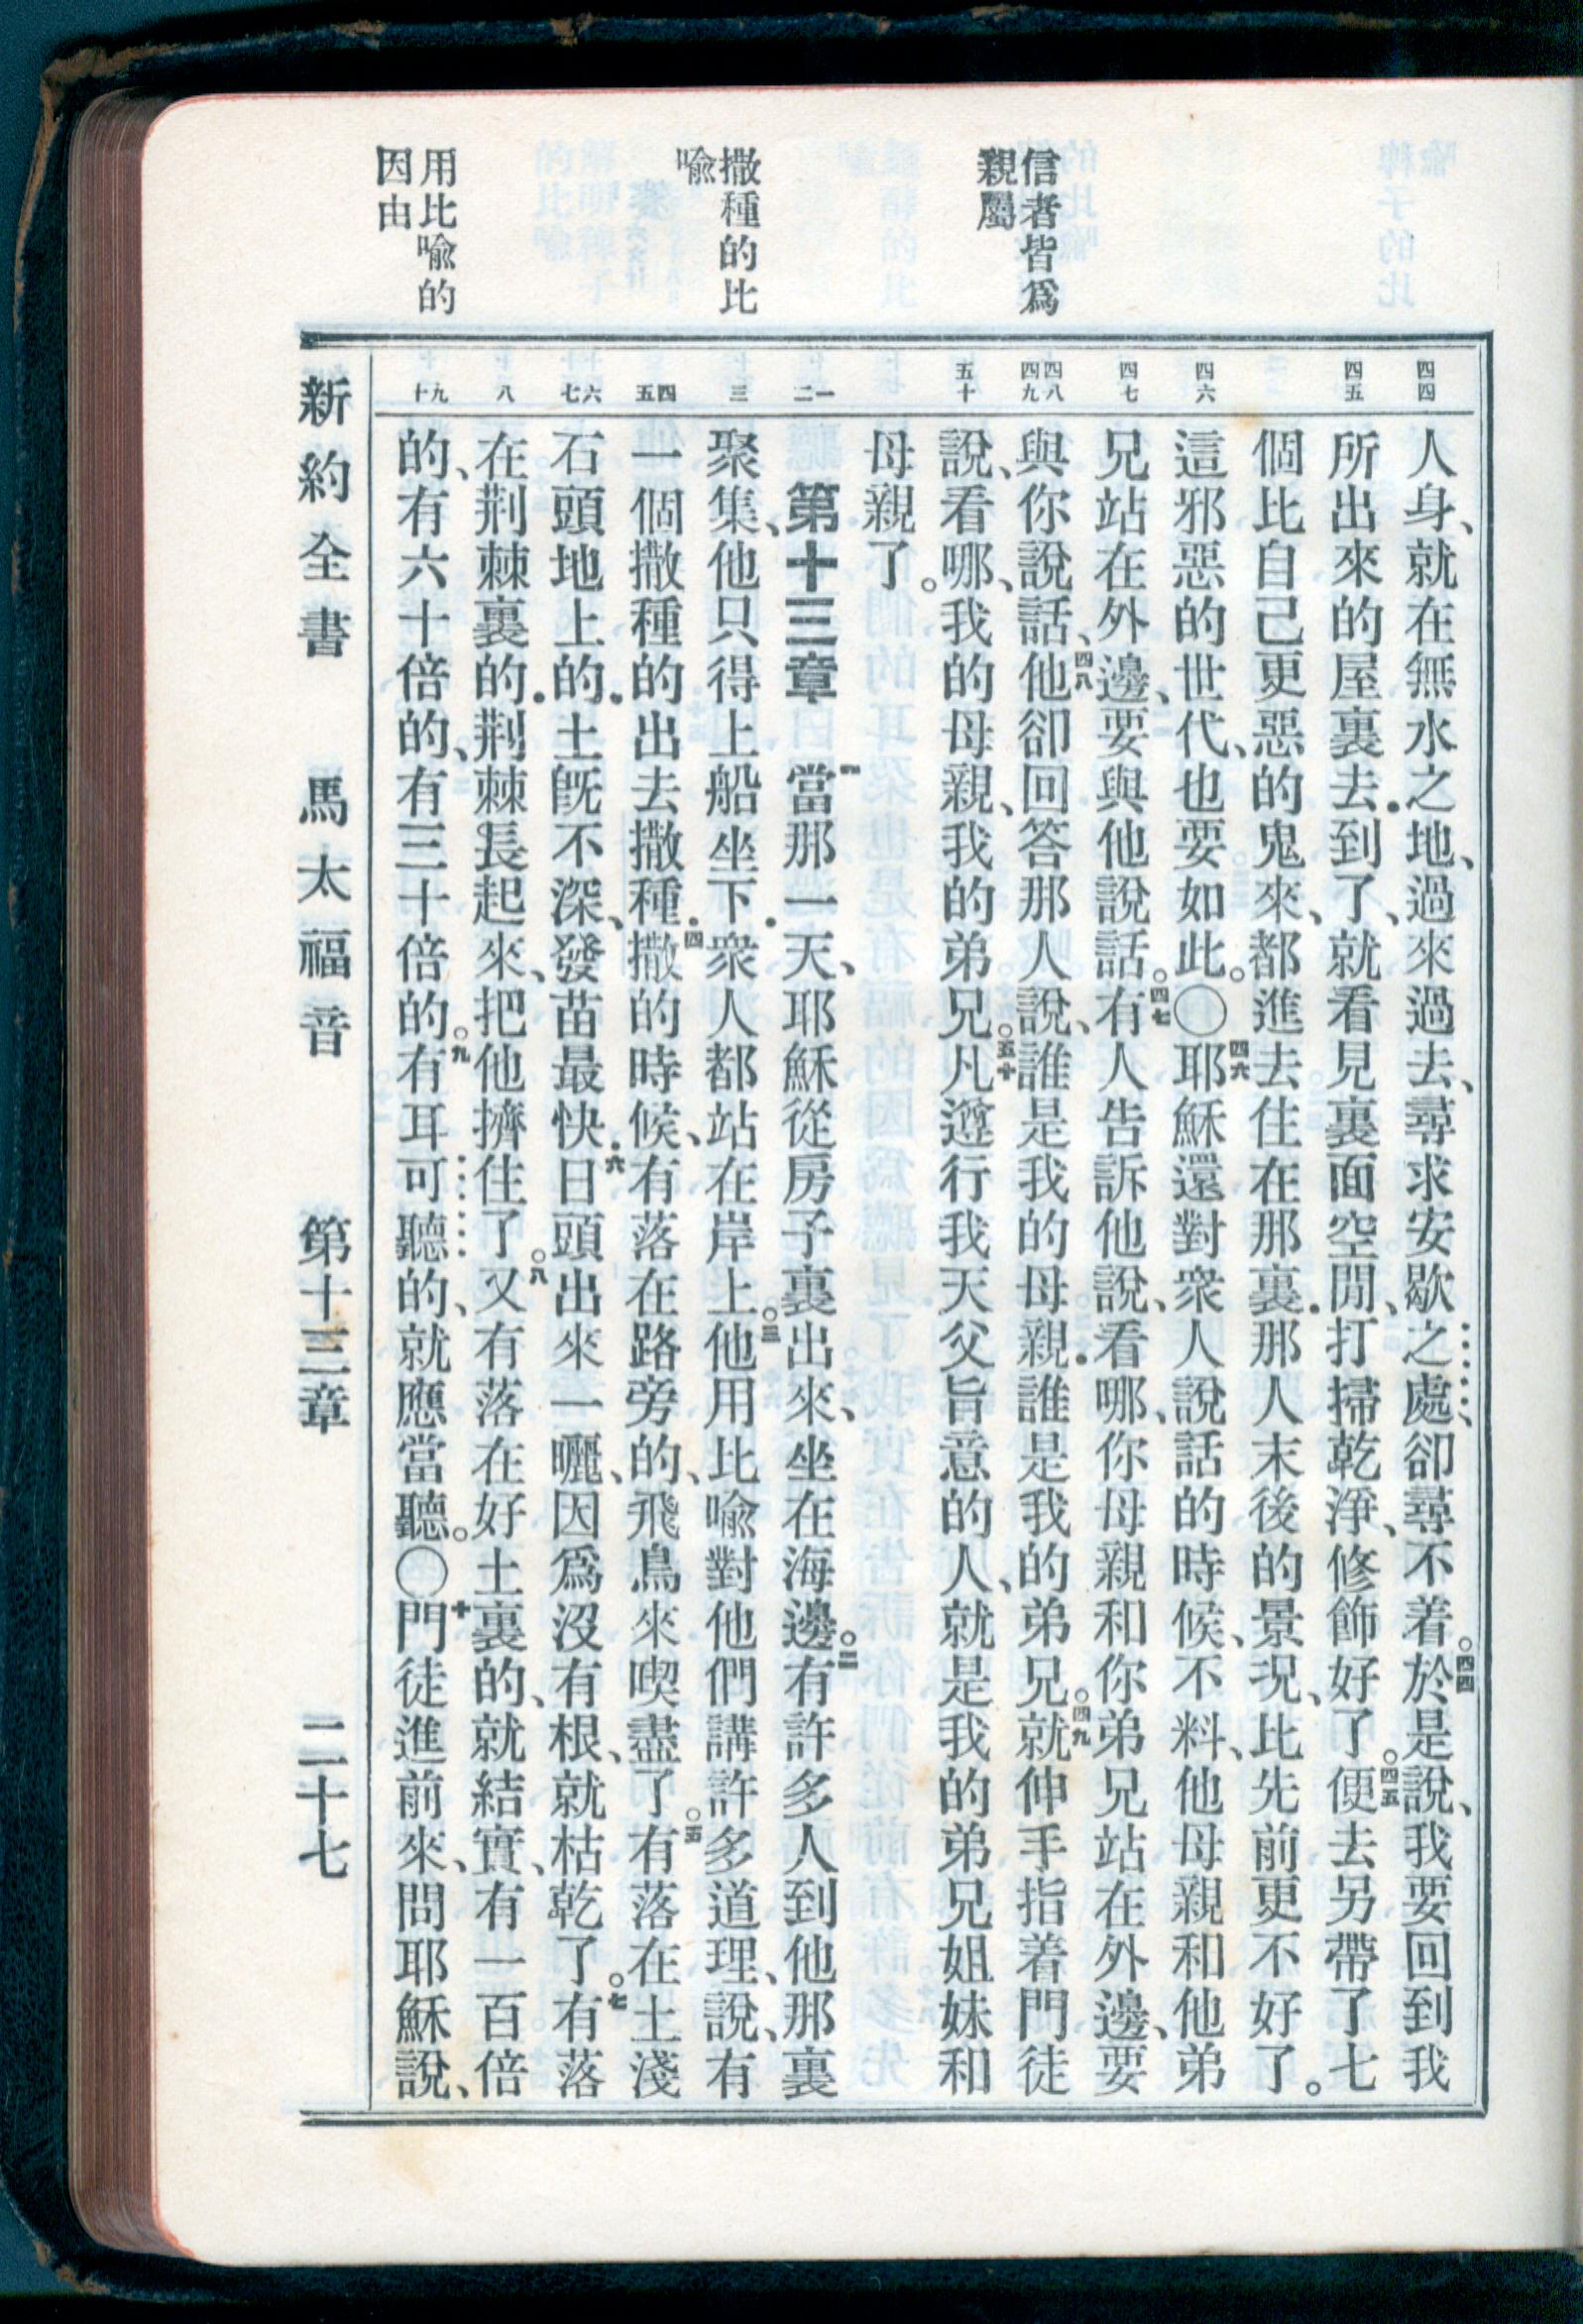 信者皆爲
親屬
撒種的比
喻
用比喻的
因由
四四
四五
四六
四七
四八
四九
五十
一
二
三
四
五
六
七
八
九
十
人身、就在無水之地、過來過去、尋求安歇之處、卻尋不着。四四於是說、我要回到我
所出來的屋裏去．到了、就看見裏面空閒、打掃乾淨、修飾好了。四五便去另帶了七
個比自己更惡的鬼來、都進去住在那裏．那人末後的景況、比先前更不好了。
這邪惡的世代、也要如此。〇四六耶穌還對衆人說話的時候、不料、他母親和他弟
兄站在外邊、要與他說話。四七有人告訴他說、看哪、你母親和你弟兄站在外邊、要
與你說話、四八他卻回答那人說、誰是我的母親．誰是我的弟兄。四九就伸手指着門徒
說、看哪、我的母親、我的弟兄。五十凡遵行我天父旨意的人、就是我的弟兄姐妹和
母親了。
第十三章 一當那一天、耶穌從房子裏出來、坐在海邊。二有許多人到他那裏
聚集、他只得上船坐下．衆人都站在岸上。三他用比喻對他們講許多道理、說、有
一個撒種的出去撒種．四撒的時候、有落在路旁的、飛鳥來喫盡了。五有落在土淺
石頭地上的．土旣不深、發苗最快．六日頭出來一曬、因爲沒有根、就枯乾了。七有落
在荆棘裏的．荆棘長起來、把他擠住了。八又有落在好土裏的、就結實、有一百倍
的、有六十倍的、有三十倍的。九有耳可聽的、就應當聽。〇十門徒進前來、問耶穌說、
新約全書 馬太福音 第十三章 二十七